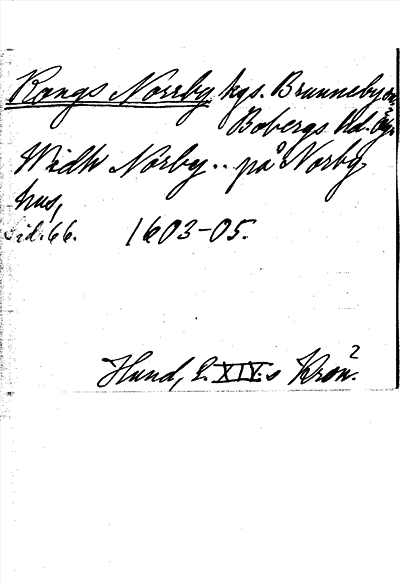 Kongs Norrby kgs. Brunneby sn,
Bobergs hd. Ög.
Widh Norby .. på Norby
hus,
Sid. 66. 1603-05.
Hund, E. XIV:s Krön.²